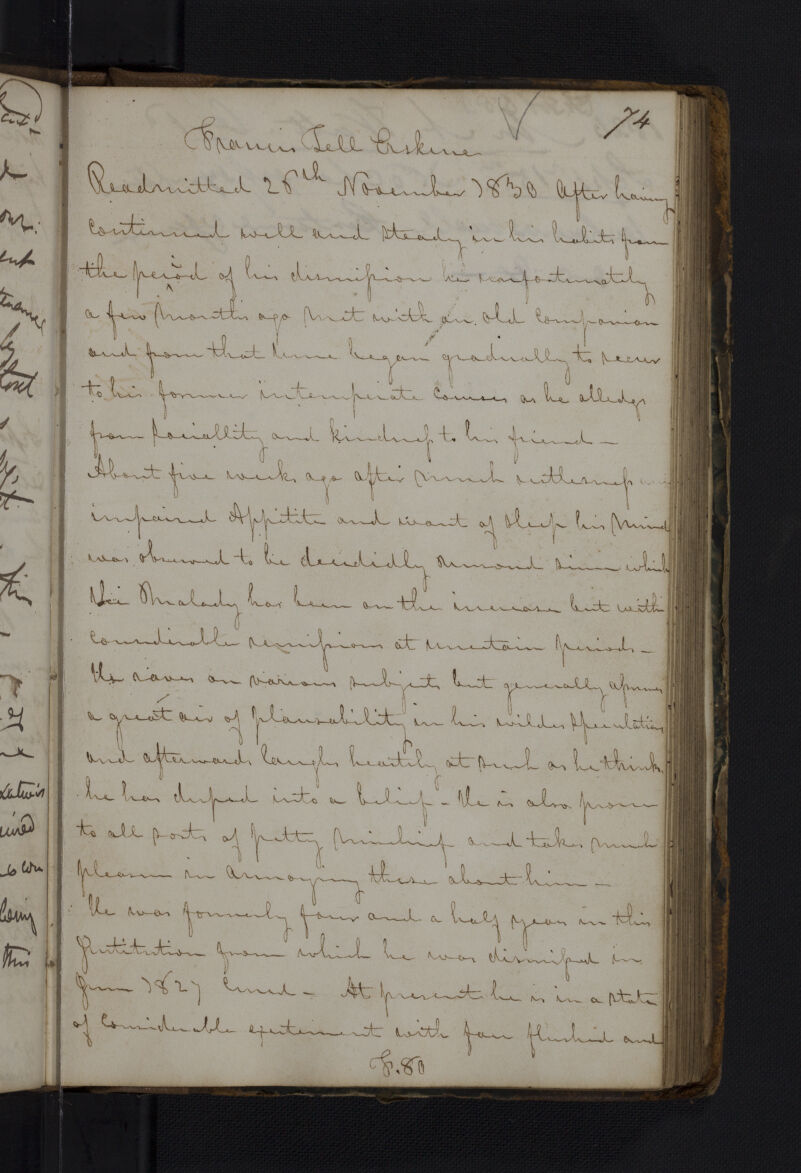 74
Francis Tell Erskine
Readmitted 28th November 1830 After having
continued well and steady in his habits from
the period of his dismission he unfortunately
a few months ago met with an old companion
and from that time began gradually to recur
to his former intemperate courses as he alledges
from sociallity and kindness to his friend –
About five weeks ago after much restlesness
impaired Appitite and want of sleep his mind
was observed to be decidedly since which
the Malady has been on the increase but with
considerable remissions at uncertain periods –
He raves on various subjects but generally assumes
a great air of plausability in his wildest speculations
and afterwards laughs heartily at such as he thinks
he has duped into a belief – He is also prone
to all sorts of petty mischief and takes much
pleasure in annoying those about him –
He was formerly four and a half years in this
Institution from which he was dismissed in
June 1827 Cured – At present he is in a state
of considerable excitement with face flushed and
F. 80